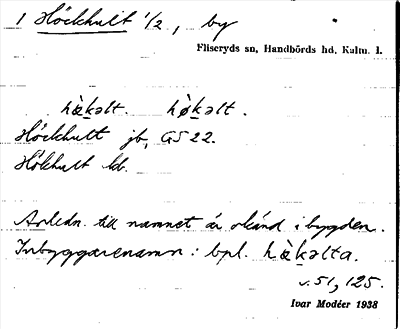 1 Höckhult 1/2, by
Fliseryds sn, Handbörds hd, Kalm. l.
hø̀k̲əlt.
Höckhult jb, GS 22.
Hökhult hb.
Anledn. till namnet är okänd i bygden.
Inbyggarenamn: bpl.
v. 51, 125.
Ivar Modéer 1938